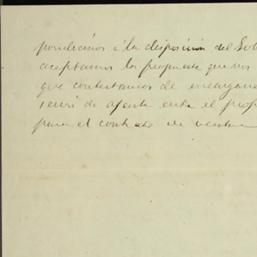 pondiamos á la disposicion del Sob
aceptamos la propuesta que nos
que contestamos de
de agente entre el prop
para el contrato de venta